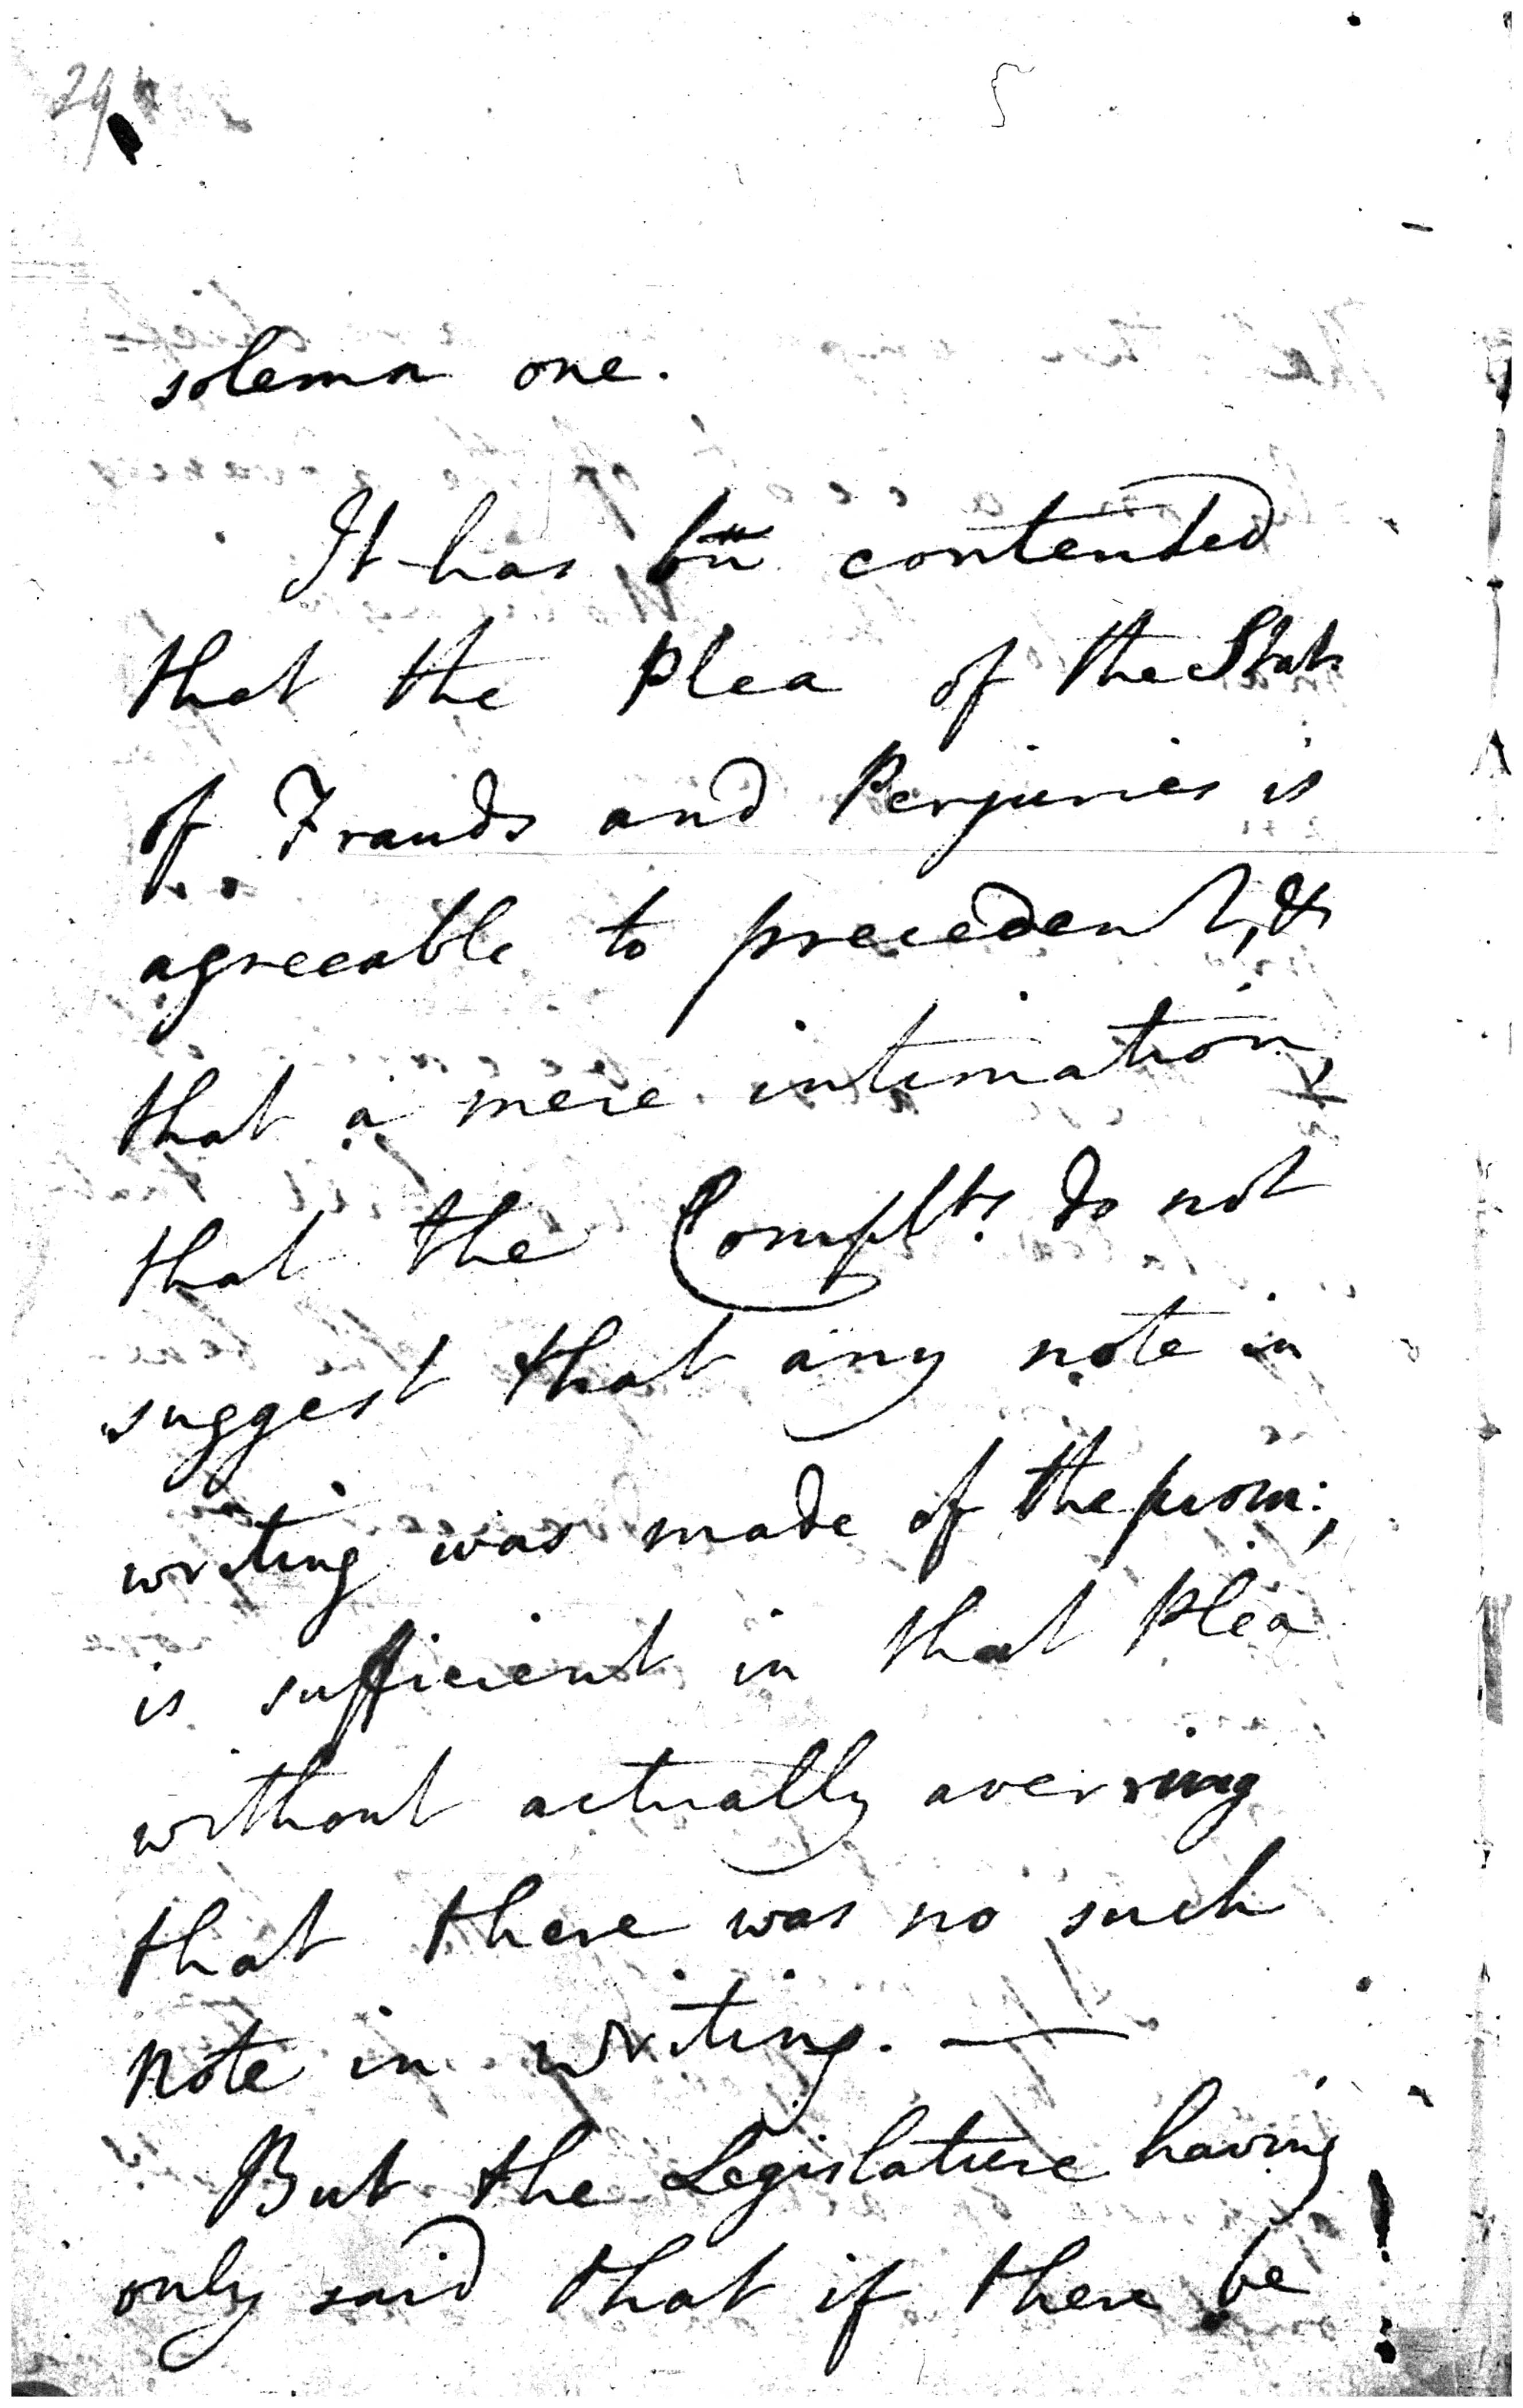 5
solemn one.
It has bn contended
that the Plea of the Stat:
of Frauds and Perjuries is
agreeable to precedent, &
that a mere intimation,
that the Complts. do not
suggest that any note in
writing was made of the prom:,
is sufficient in that Plea
without actually averring
that there was no such
note in writing. —
But the Legislature having
only said that if there be